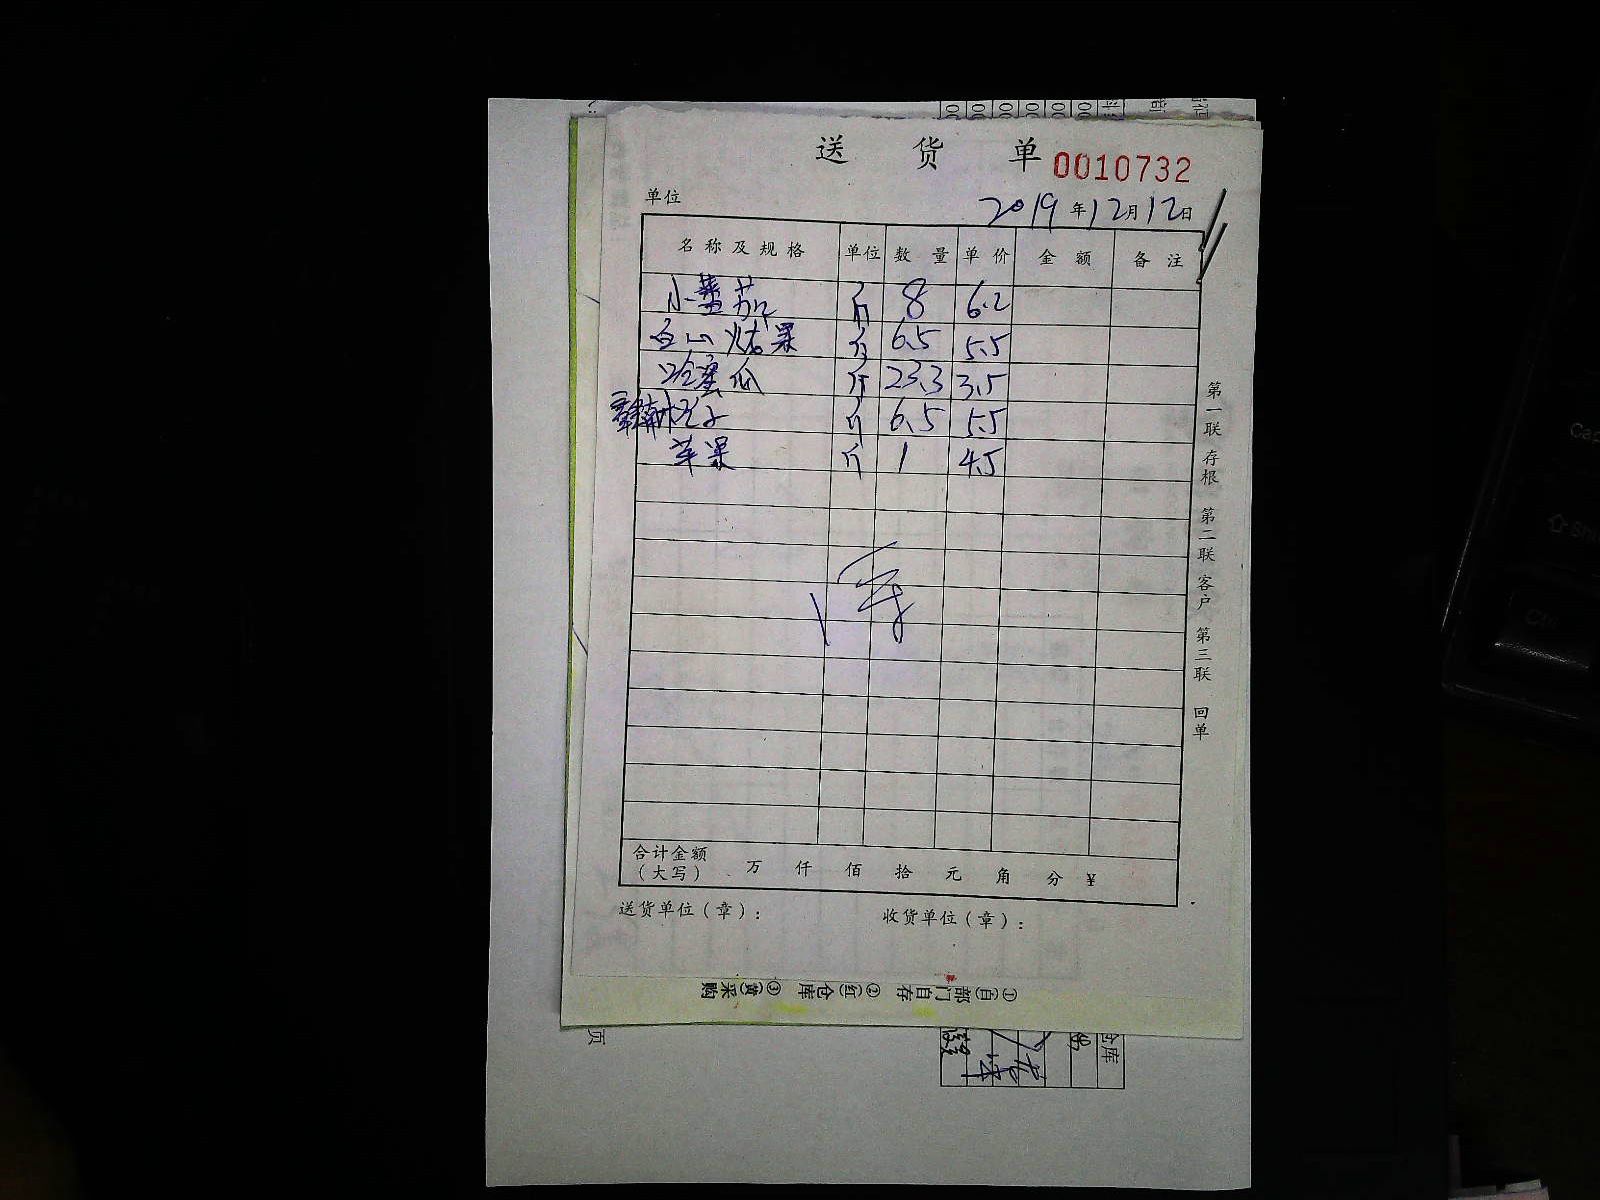 送 货 单 0010732
单位 2019 年 12 月 12 日
名 称 及 规 格 单位 数 量 单 价 金 额 备 注
小蕃茄 斤 8 6.2
斤 6.5 5.5
哈蜜瓜 斤 23.3 3.5
斤 6.5 5.5
苹果 斤 1 4.5
合计金额
（大写） 万 仟 佰 拾 元 角 分 ￥
送货单位（章）： 收货单位（章）：
第一联 存根 第二联 客户 第三联 回单
①(白)部门自存 ②(红)仓库 ③(黄)采购
页
仓库